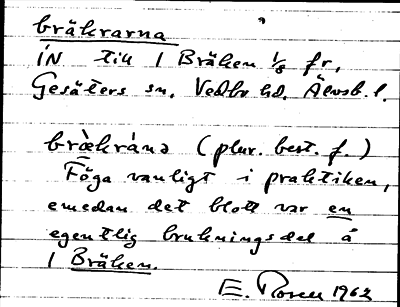 bräkrarna
IN till 1 Bräken 1/8 fr,
Gesäters sn. Vedbo hd. Älvsb. l.
bræ̀krána (plur. best. f.)
Föga vanligt i praktiken,
emedan det blott var en
egentlig brukningsdel å
1 Bräken.
E. Rosen 1962